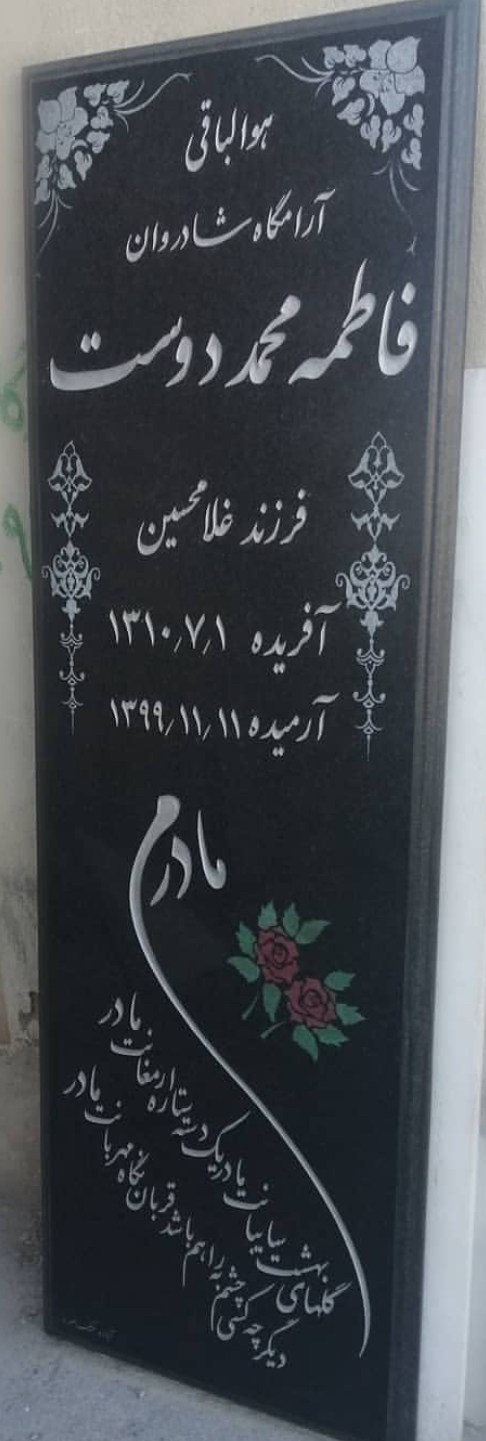 هوالباقی
آرامگاه شادروان
فاطمه محمد دوست
فرزند غلامحسین
آفریده ۱۳۱۰٫۷٫۱
آرمیده ۱۳۹۹٫۱۱٫۱۱
مادرم
گلهای بهشت سایبانت مادر
یک دسته ستاره ارمغانت مادر
دیگر چه کسی چشم به راهم باشد
قربان نگاه مهربانت مادر